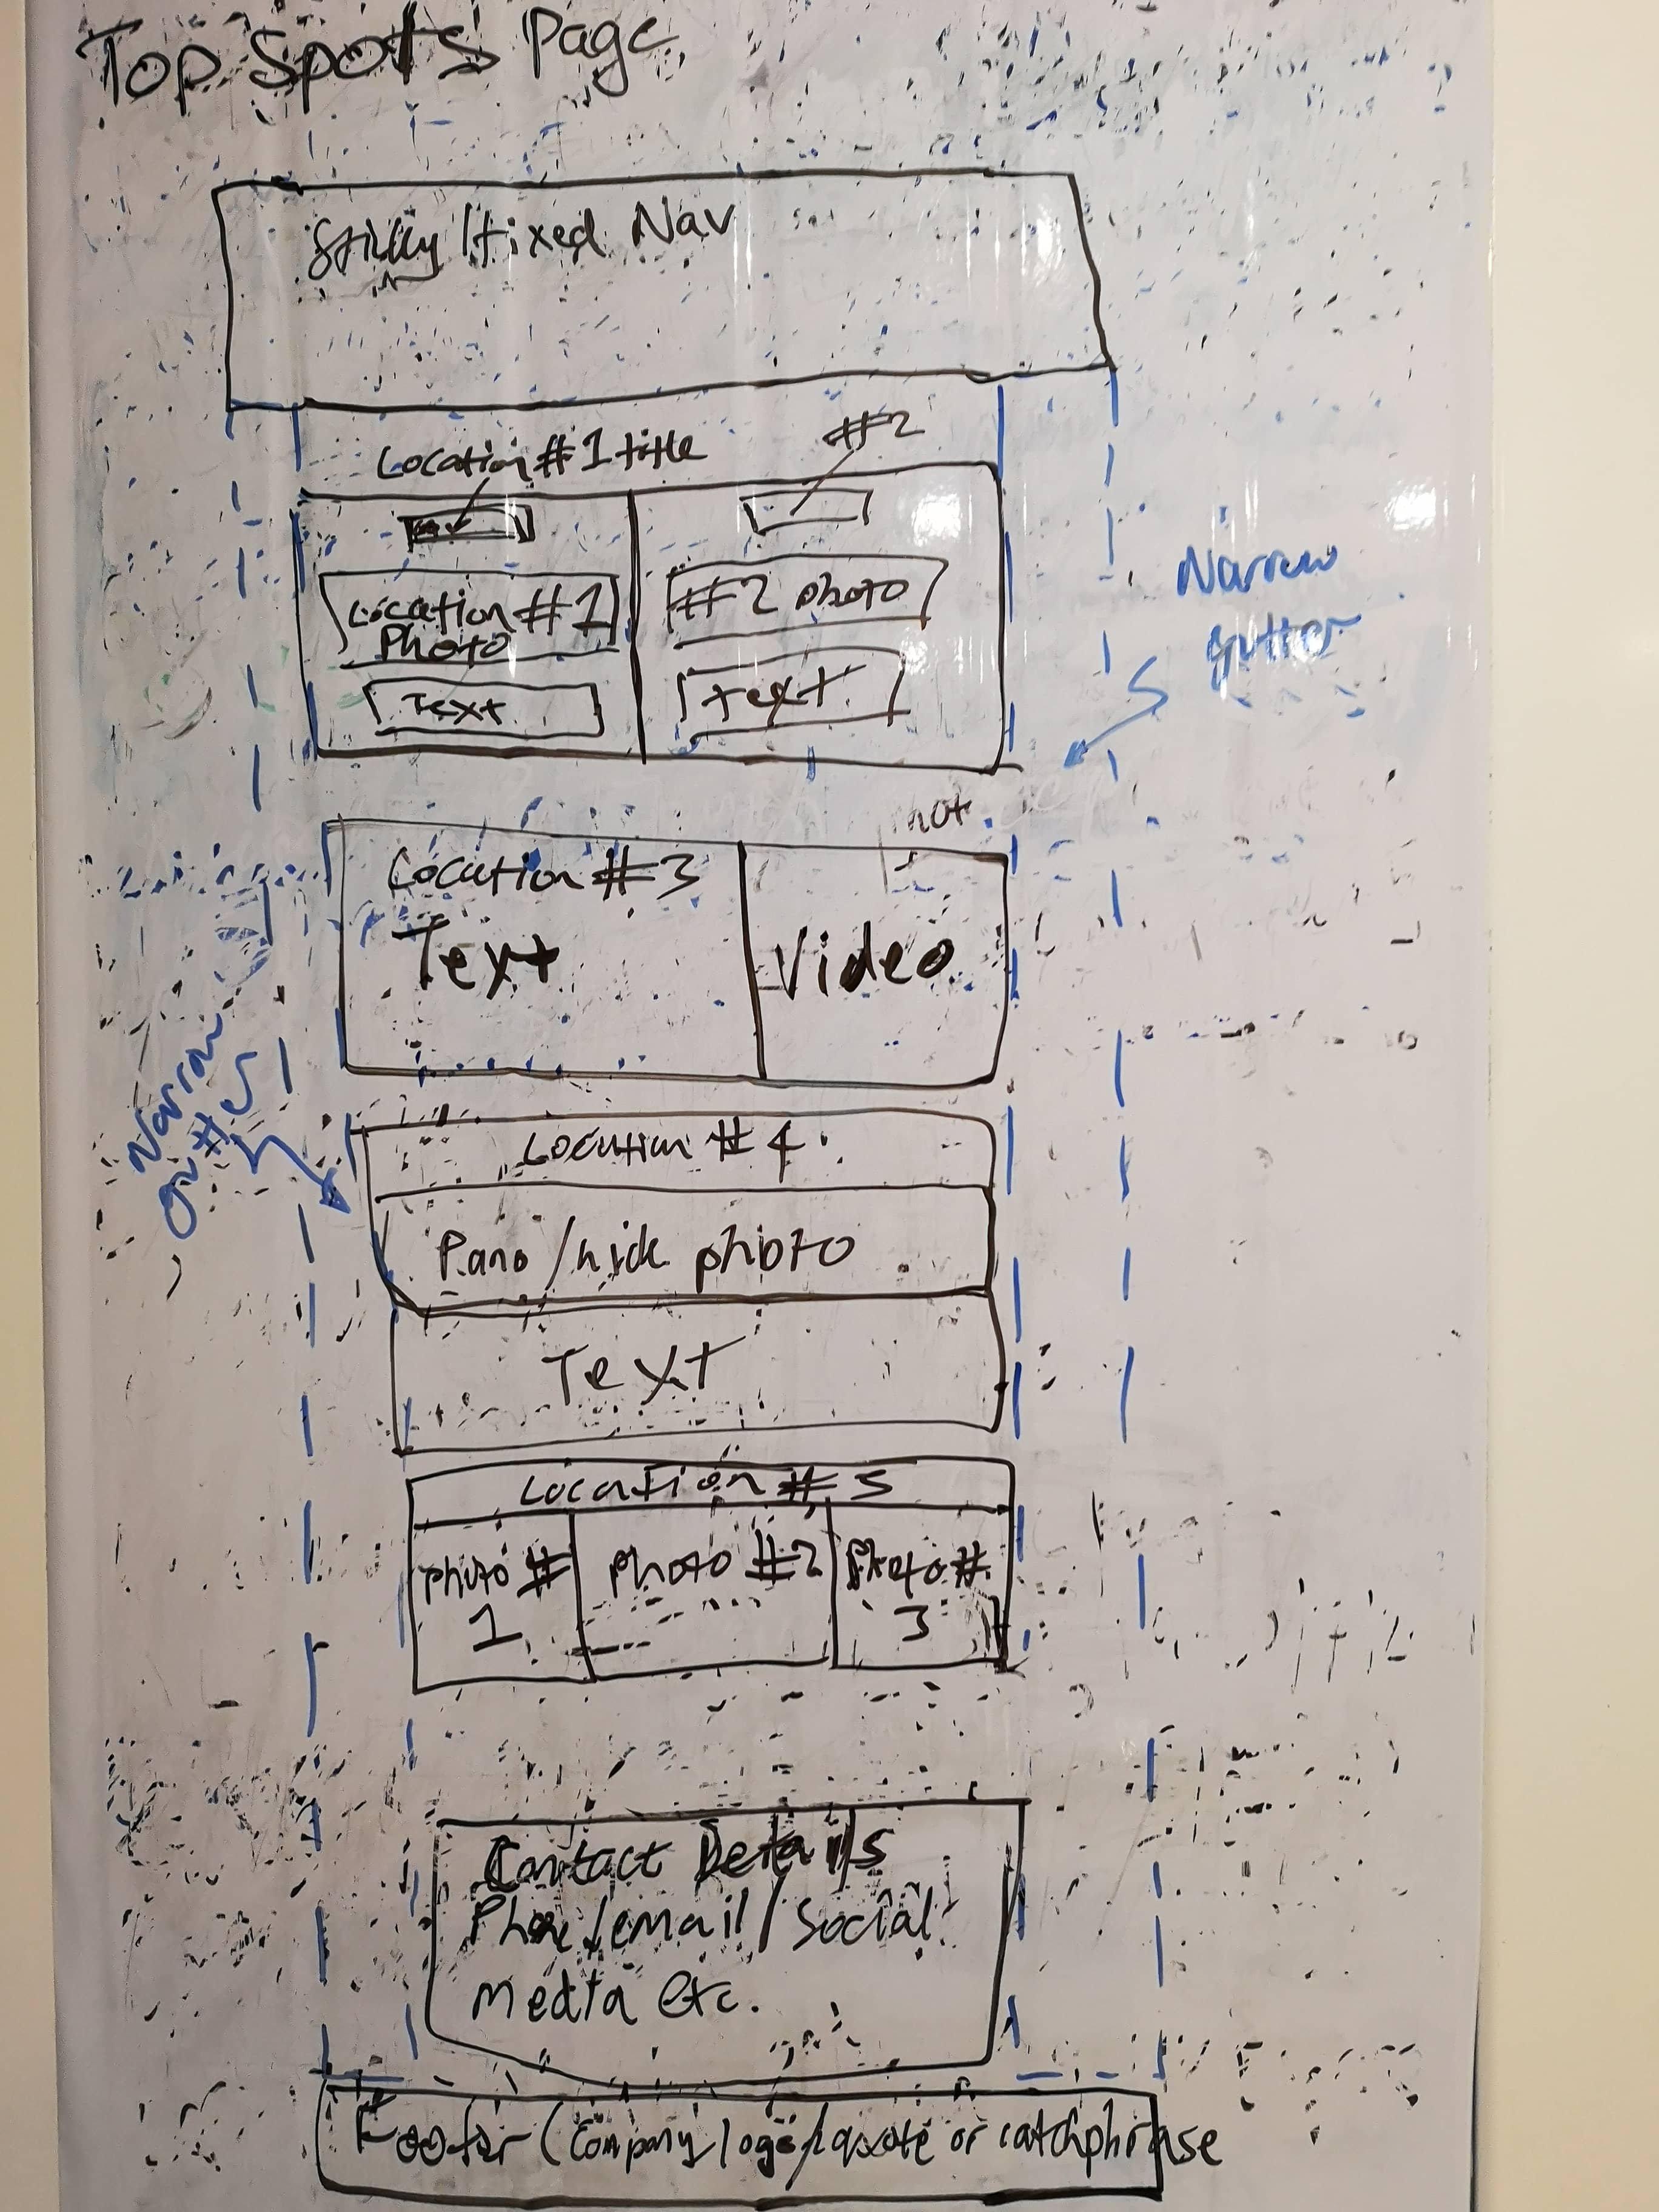 Top Spots Page
Sticky / fixed Nav
Location #1 title
#2
Location #1
Photo
#2 photo
Text
text
Narrow
gutter
Location #3
Text
Video
Narrow
Location #4
Pano / wide photo
Text
Location #5
photo #
1
photo #2
Photo #
3
Contact Details
Phone / email / Social
media etc.
Footer (Company logo / quote or catchphrase